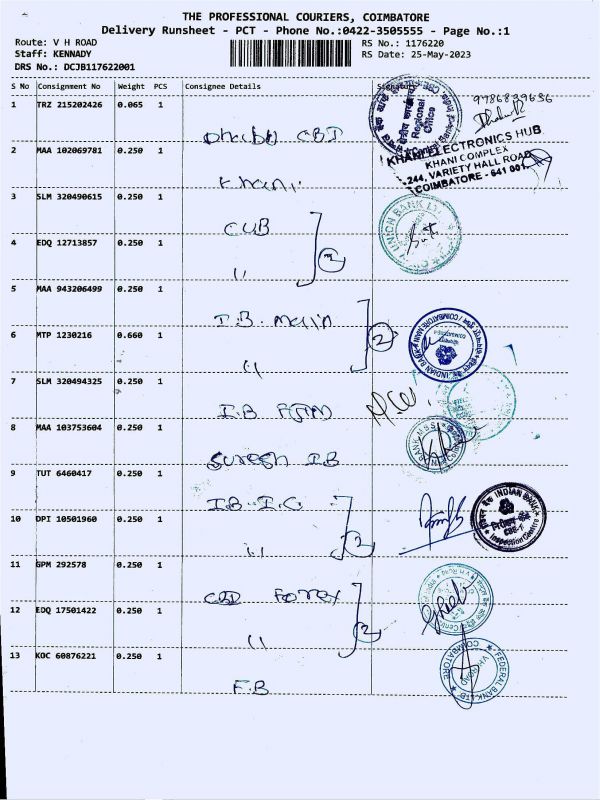 THE PROFESSIONAL COURIERS, COIMBATORE
Delivery Runsheet - PCT - Phone No.:0422-3505555 - Page No.:1
Route: V H ROAD
RS No.: 1176220
Staff: KENNADY
RS Date: 25-May-2023
DRS No.: DCJB117622001
S No Consignment No Weight PCS Consignee Details
1 TRZ 215202426 0.065 1
9786839636
CBI
Regional Office
2 MAA 102069781 0.250 1
KHANI ELECTRONICS HUB
KHANI COMPLEX
244, VARIETY HALL ROAD
COIMBATORE - 641 001
Khani
3 SLM 320490615 0.250 1
CUB
UNION BANK
4 EDQ 12713857 0.250 1
11 2
5 MAA 943206499 0.250 1
I.B. main
6 MTP 1230216 0.660 1
11 2
INDIAN BANK COIMBATORE MAIN
7 SLM 320494325 0.250 1
I.B
8 MAA 103753604 0.250 1
Suresh IB
9 TUT 6460417 0.250 1
I.B-I.C
INDIAN BANK
Inspection Centre
CBE
10 DPI 10501960 0.250 1
11 2
11 GPM 292578 0.250 1
Forex
12 EDQ 17501422 0.250 1
11 2
13 KOC 60876221 0.250 1
F.B
FEDERAL BANK LTD
VH ROAD
COIMBATORE